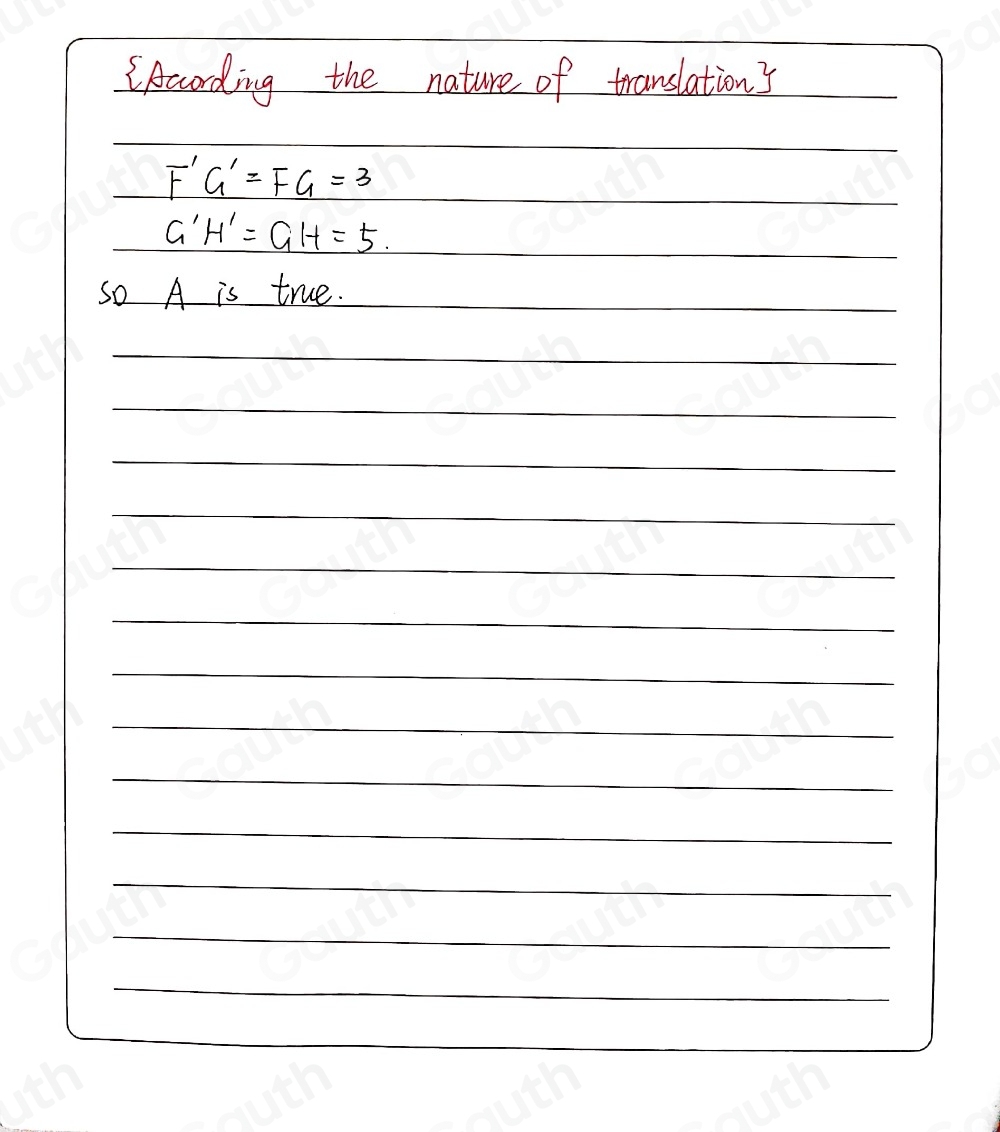 {Acording the nature of translation}
F'G' = FG = 3
G'H' = GH = 5.
so A is true.